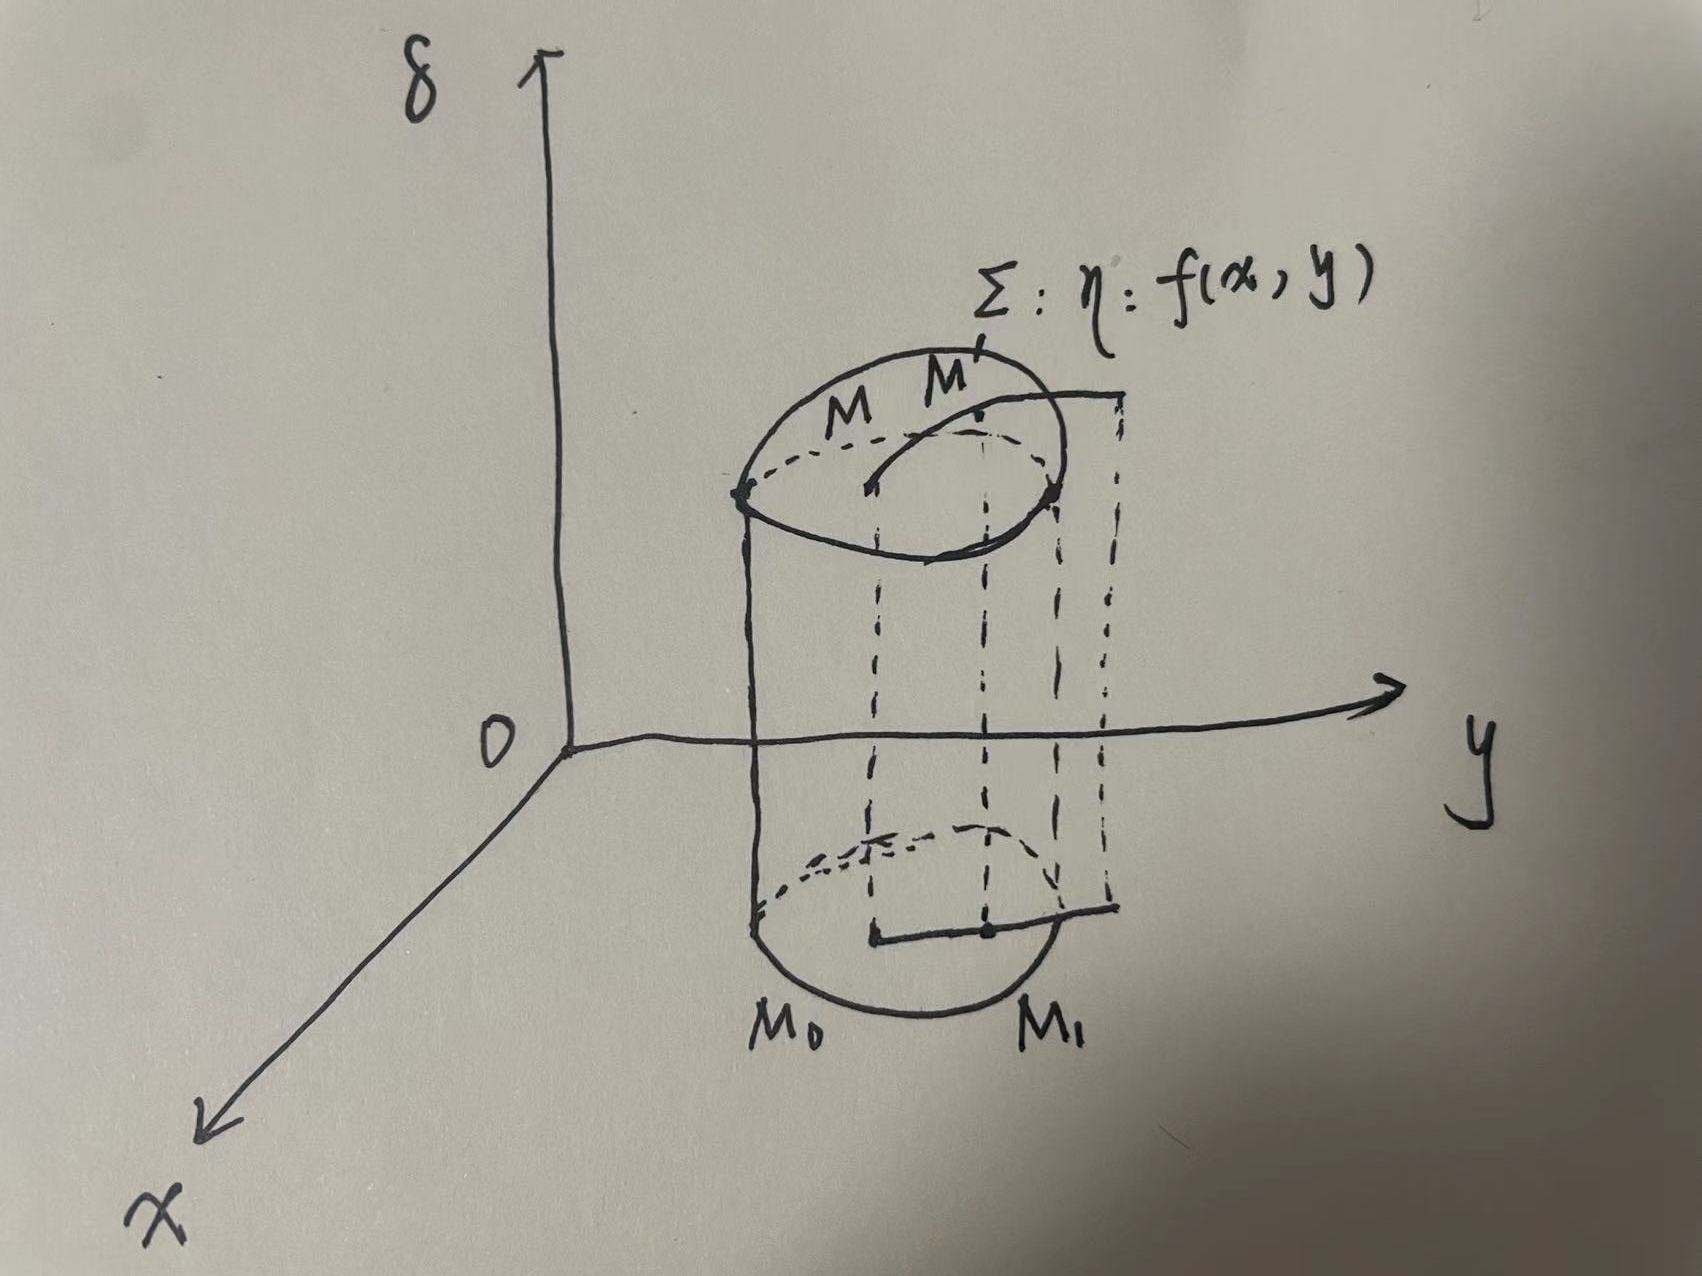 8
Σ: η: f(x, y)
M M'
0
y
M₀ M₁
x